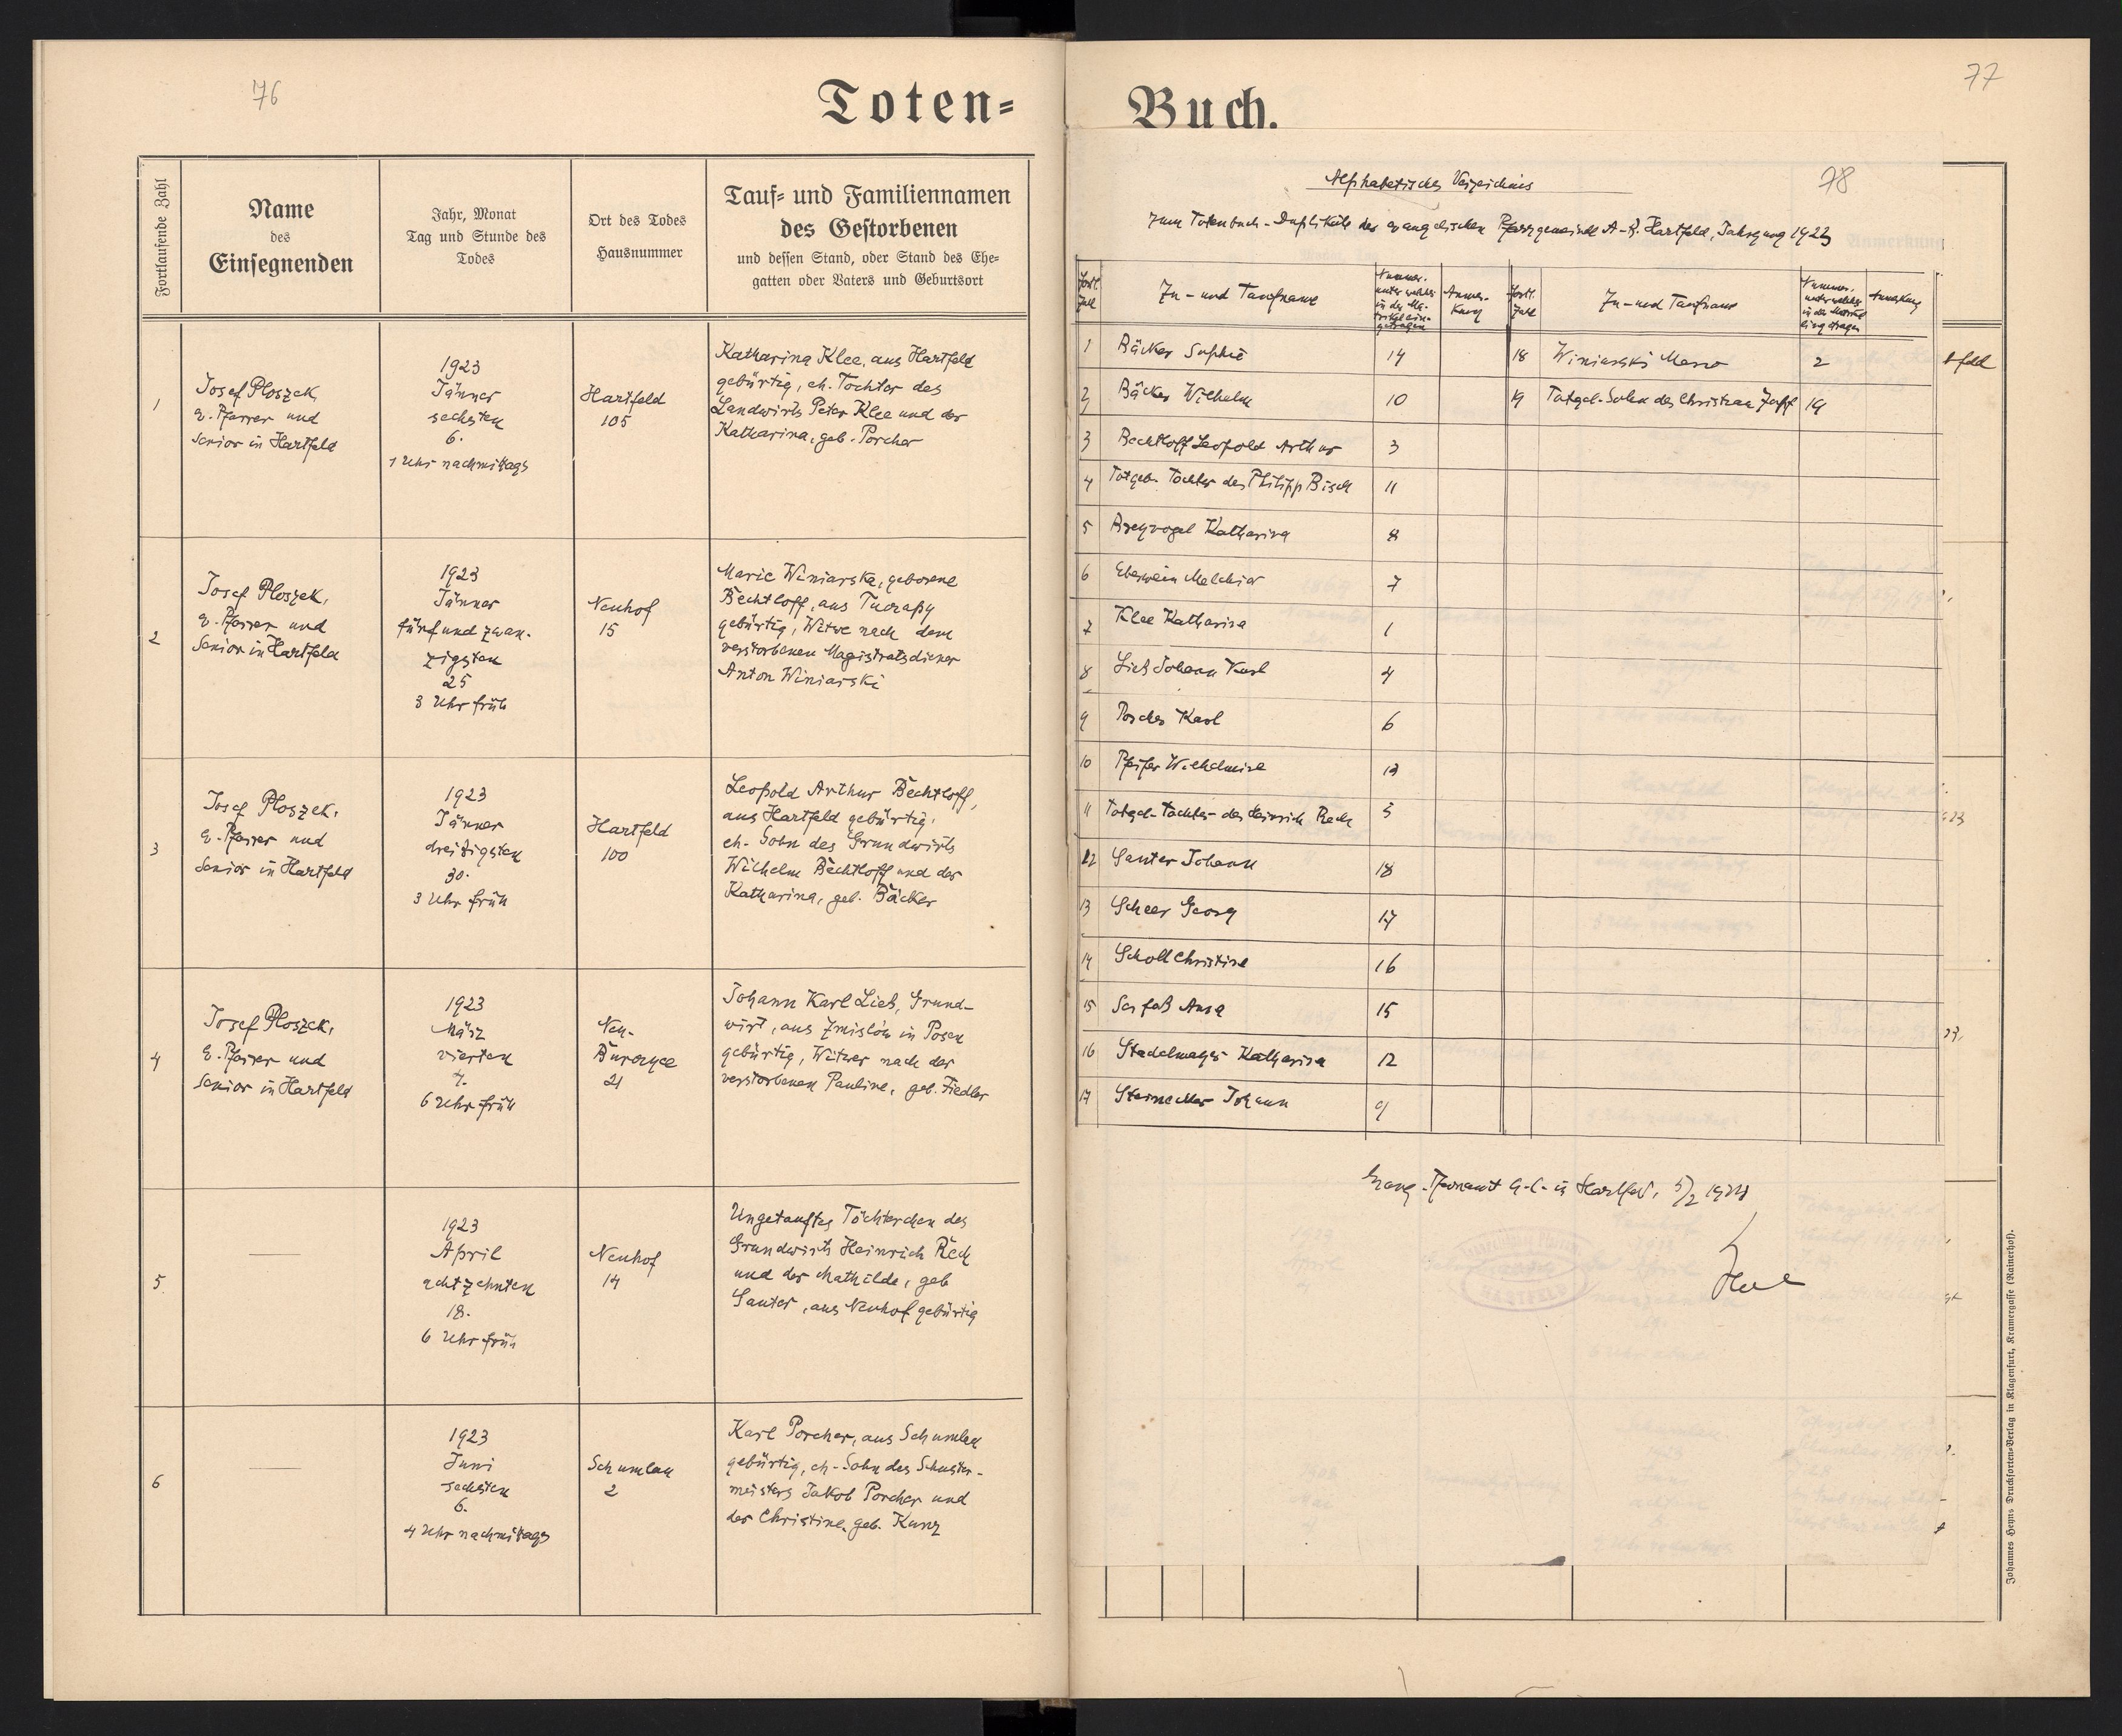 76
Toten=
Fortlaufende Zahl
Name
des
Einsegnenden
Jahr, Monat
Tag und Stunde des
Todes
Ort des Todes
Hausnummer
Tauf= und Familiennamen
des Gestorbenen
und dessen Stand, oder Stand des Ehe=
gatten oder Vaters und Geburtsort
1
Josef Ploszek,
e. Pfarrer und
Senior in Hartfeld
1923
Jänner
sechsten
6.
1 Uhr nachmittags
Hartfeld
105
Katharina Klee, aus Hartfeld
gebürtig, eh. Tochter des
Landwirts Peter Klee und der
Katharina, geb. Porcher
2
Josef Ploszek,
e. Pfarrer und
Senior in Hartfeld
1923
Jänner
fünfundzwan-
zigsten
25
3 Uhr früh
Neuhof
15
Marie Winiarska, geborene
Bechtloff, aus
gebürtig, Witwe nach dem
verstorbenen Magistratsdiener
Anton Winiarski
3
Josef Ploszek,
e. Pfarrer und
Senior in Hartfeld
1923
Jänner
dreißigsten
30.
3 Uhr früh
Hartfeld
100
Leopold Arthur Bechtloff,
aus Hartfeld gebürtig,
eh. Sohn des Grundwirts
Wilhelm Bechtloff und der
Katharina, geb. Bäcker
4
Josef Ploszek,
e. Pfarrer und
Senior in Hartfeld
1923
März
vierten
4.
6 Uhr früh
Neu-
Burczyce
21
Johann Karl Lieb, Grund-
wirt, aus Zmislów in Posen
gebürtig, Witwer nach der
verstorbenen Pauline, geb. Fiedler
5.
1923
April
achtzehnten
18.
6 Uhr früh
Neuhof
14
Ungetauftes Töchterchen des
Grundwirts Heinrich Rech
und der Mathilde, geb
Sauter, aus Neuhof gebürtig
6
1923
Juni
sechsten
6.
4 Uhr nachmittags
Schumlau
2
Karl Porcher, aus Schumlau
gebürtig, eh. Sohn des Schuster-
meisters Jakob Porcher und
der Christine, geb. Kunz
77
Buch.
Alphabetisches Verzeichnis
78
zum Totenbuch-Duplikate der evangelischen Pfarrgemeinde A.B. Hartfeld, Jahrgang 1923
Fortl. Zahl
Zu- und Taufname
Nummer, unter welcher in der Matrikel eingetragen
Anmerkung
Fortl. Zahl
Zu- und Taufname
Nummer, unter welcher in der Matrikel eingetragen
Anmerkung
1 Bäcker Sophie 14
18 Winiarski Marie 2
2 Bäcker Wilhelm 10
19 Totgeb. Sohn des Christian Zapf 19
3 Bechtloff Leopold Arthur 3
4 Totgeb. Tochter des Philipp Bisch 11
5 Katharina 8
6 Eberwein Melchior 7
7 Klee Katharina 1
8 Lieb Johann Karl 4
9 Porcher Karl 6
10 Pfeifer Wilhelmine 13
11 Totgeb. Tochter des Heinrich Rech 5
12 Sauter Johann 18
13 Scheer Georg 17
14 Scholl Christine 16
15 Anna 15
16 Stadelmayer Katharina 12
17 Johann 9
Evang. Pfarramt A.C. in Hartfeld, 5/2 1924
Johannes Heyns Drucksorten=Verlag in Klagenfurt, Kramergasse (Rainerhof).